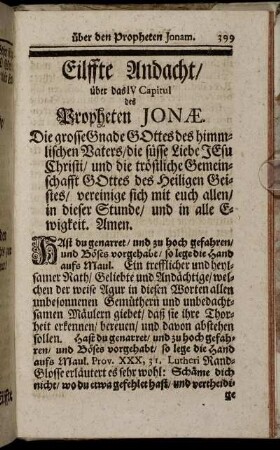 über den Propheten Jonam. 399
Eilffte Andacht/
über das IV Capitul
des
Propheten JONÆ.
Die grosse Gnade GOttes des himm-
lischen Vaters/die süsse Liebe JEsu
Christi/ und die tröstliche Gemein-
schafft GOttes des Heiligen Gei-
stes/ vereinige sich mit euch allen/
in dieser Stunde/ und in alle E-
wigkeit. Amen.
HAst du genarret/ und zu hoch gefahren/
und Böses vorgehabt/ so lege die Hand
aufs Maul. Ein trefflicher und heyl-
samer Rath/ Geliebte und Andächtige/ wel-
chen der weise Agur in diesen Worten allen
unbesonnenen Gemüthern und unbedacht-
samen Mäulern giebet/ daß sie ihre Thor-
heit erkennen/ bereuen/ und davon abstehen
sollen. Hast du genarret/ und zu hoch gefah-
ren/ und Böses vorgehabt/ so lege die Hand
aufs Maul. Prov. XXX, 31. Lutheri Rand-
Glosse erläutert es sehr wohl: Schäme dich
nicht/ wo du etwa gefehlet hast/ und vertheidi-
ge